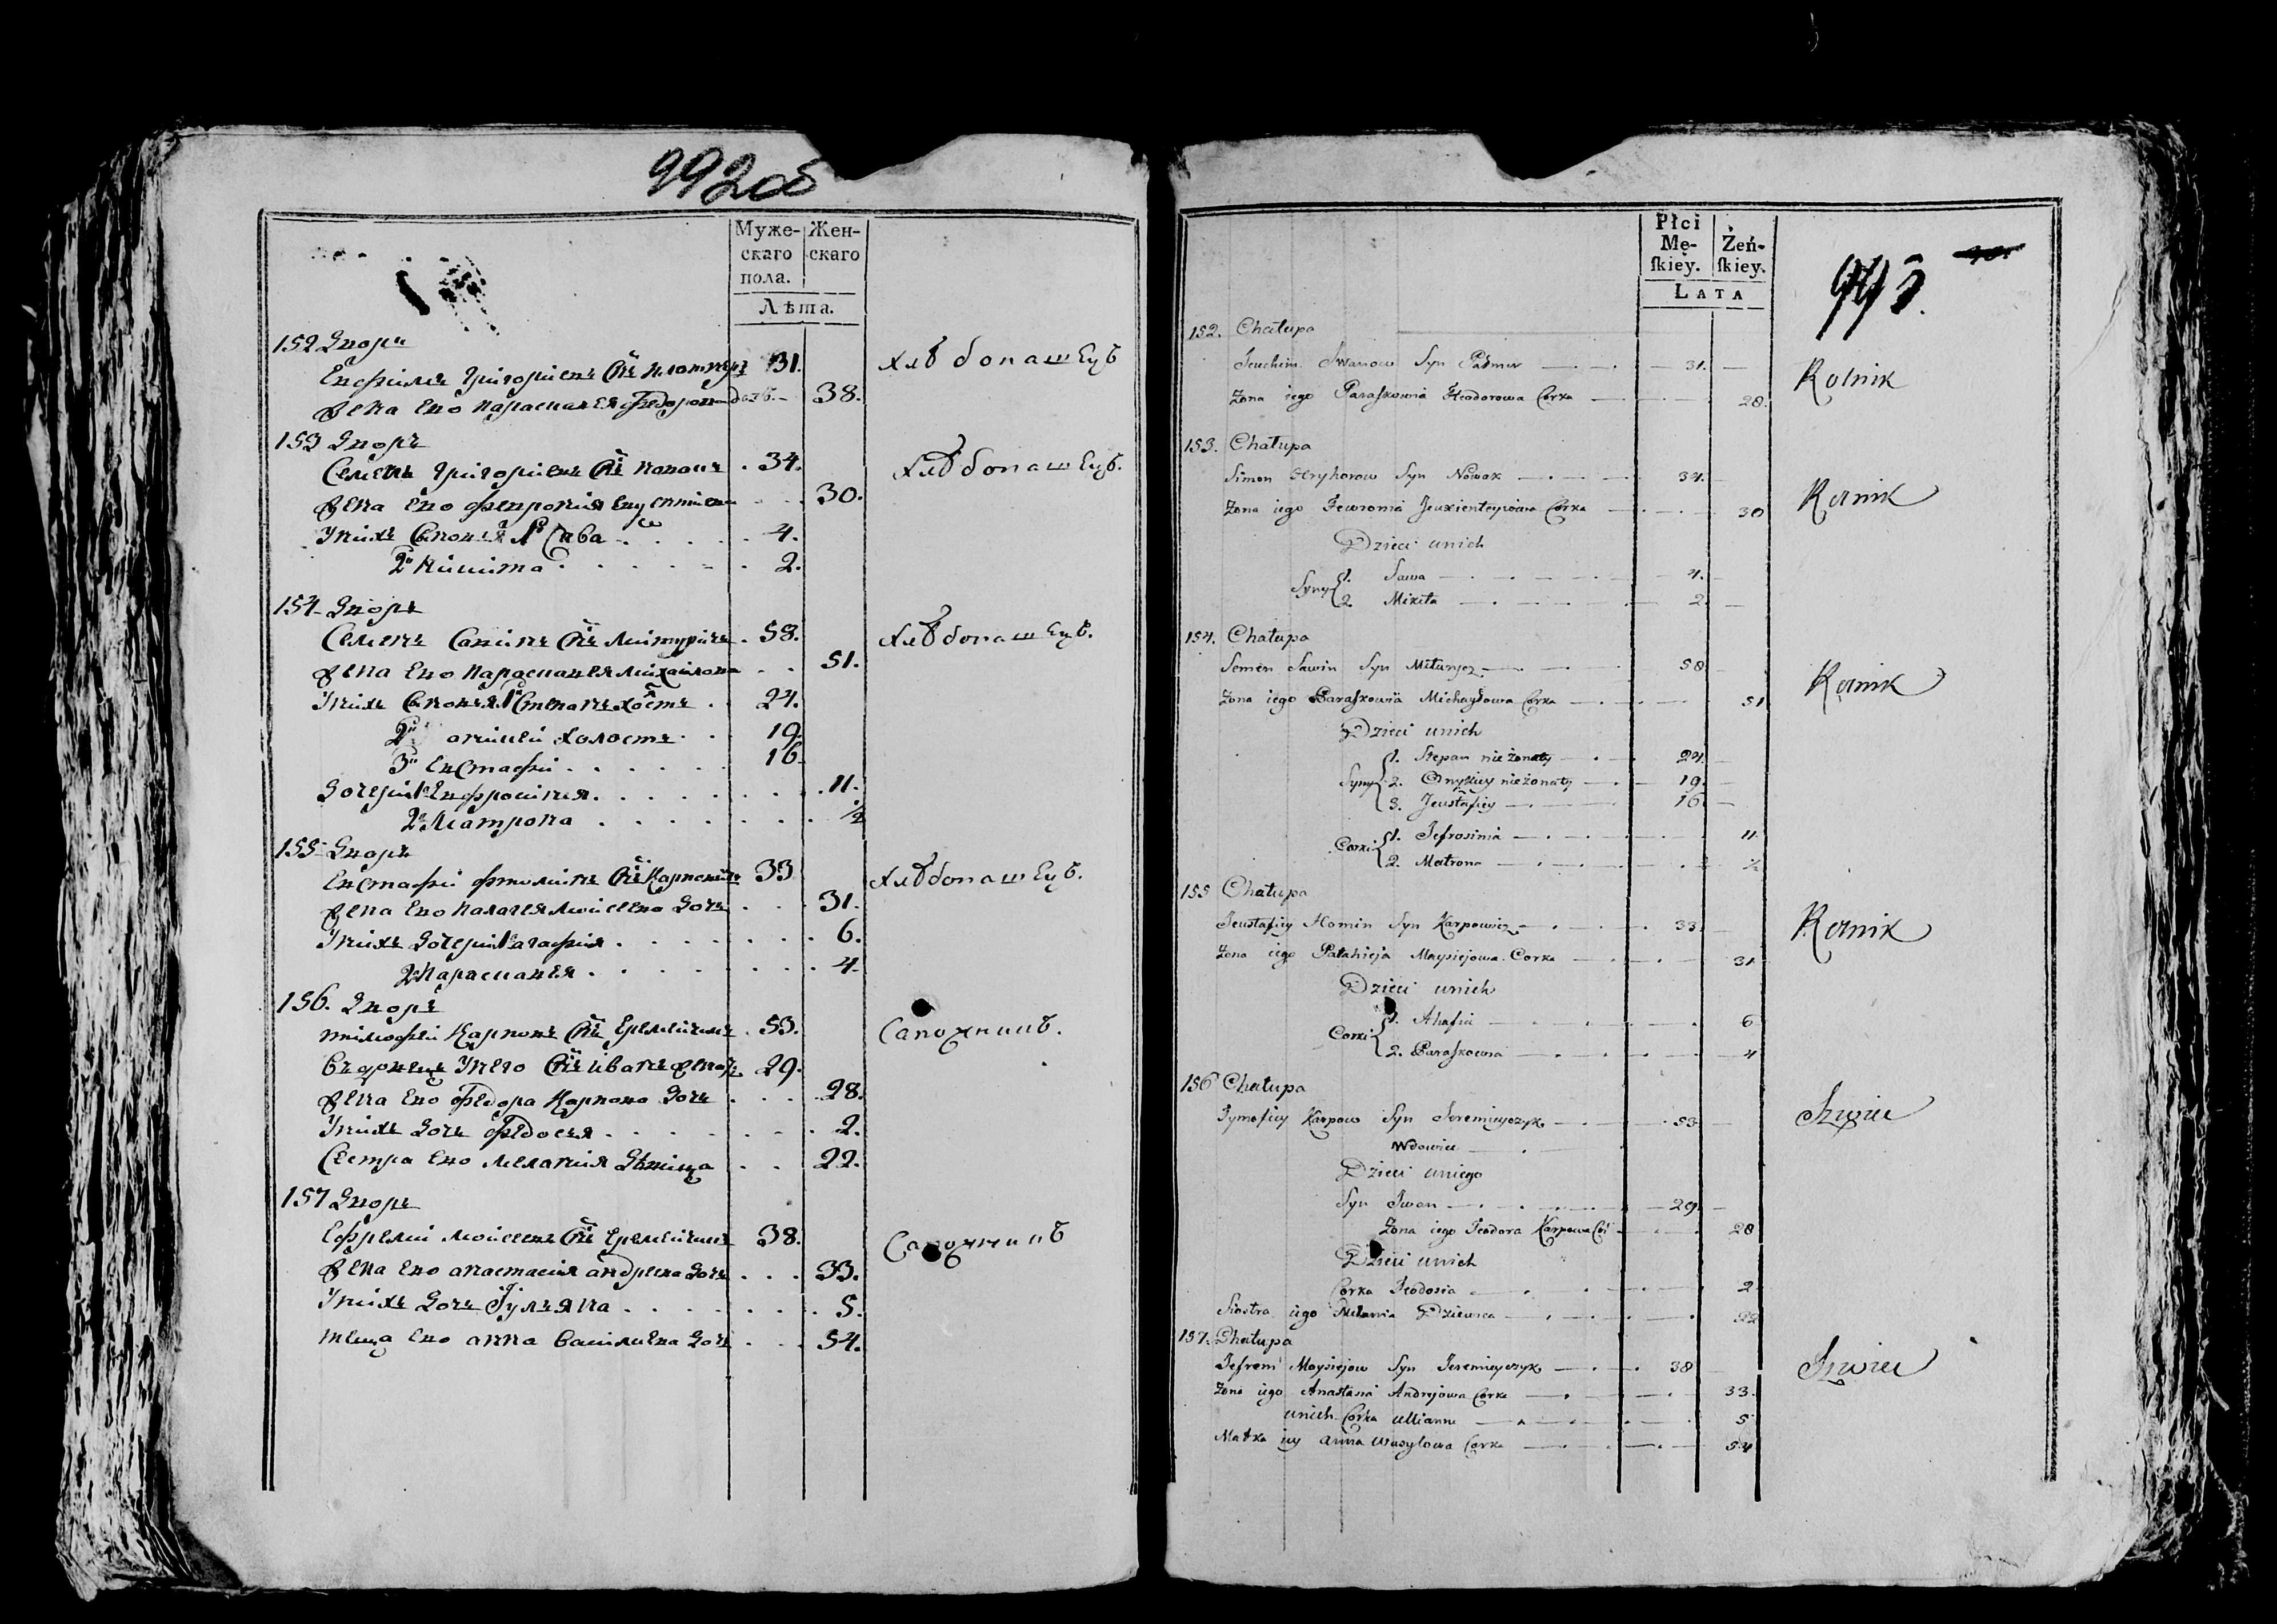 992об
Муже-
скаго
пола.
Жен-
скаго
Лѣта.
152 Дворъ
31.
Хлѣбопашецъ
Жена Ево Параскавея Федорова дочь
38.
153 Дворъ
Семенъ Григориевъ Сынъ Новакъ
34.
Хлѣбопашецъ.
Жена Ево Феврония
30.
У нихъ Сыновя 1й Сава
4.
2й Микита
2.
154 Дворъ
Семенъ Савинъ Сынъ Митуричъ
58.
Хлѣбопашецъ.
Жена Ево Параскавея Михайлова
51.
У нихъ Сыновя 1й Степанъ холостъ
24.
2й Аникей холостъ
19
3й Евстафи
16
Дочери 1я Евфросиния
11.
2я Матрона
1/2
155 Дворъ
Евстафи Фоминъ Сынъ Карповичъ
33
Хлѣбопашецъ.
Жена Ево Палагея Моисеева Дочь
31.
У нихъ Дочери 1я Агафия
6.
2я Параскавея
4.
156. Дворъ
Тимофей Карповъ Сынъ Еремейчикъ
53.
Сапожникъ.
Вдовецъ У него Сынъ Иванъ женатъ
29.
Жена Ево Федора Карпова Дочь
28.
У нихъ Дочь Федосея
2.
Сестра Ево Мелания Девица
22.
157 Дворъ
Ефремъ Моисеевъ Сынъ Еремейчикъ
38.
Сапожникъ
Жена Ево Анастасия Андреева Дочь
33.
У нихъ Дочь Гульяна
5.
Теща Ево Анна Василиева Дочь
54.
Płci
Mę-
skiey.
Żeń-
skiey.
LATA
993.
152. Chałupa
Jeuchim Iwanow Syn
31.
Rolnik
Zona iego Paraskowia Teodorowa Corka
28.
153. Chałupa
Simon Hryhorow Syn Nowak
34.
Rolnik
Zona iego Fewronia Corka
30
Dzieci unich
Syny 1. Sawa
4.
2. Mikita
2.
154. Chałupa
Semen Sawin Syn Miturycz
58
Rolnik
Zona iego Paraskowia Michayłowa Corka
51
Dzieci unich
Syny 1. Stepan nieżonaty
24.
2. Onykiey nieżonaty
19.
3. Jeustafiey
16.
Corki 1. Jefrosinia
11.
2. Matrona
1/2
155 Chałupa
Jeustafiey Homin Syn Karpowicz
33.
Rolnik
Zona iego Pałahieja Moysiejowa Corka
31.
Dzieci unich
Corki 1. Ahafia
6
2. Paraskowia
4
156 Chałupa
Tymofiey Karpow Syn Jeremieyczyk
53
Szwiec
Wdowiec
Dzieci uniego
Syn Iwan
29.
Zona iego Teodora Karpowa Cor
28
Dzieci unich
Corka Teodosia
2
Siostra iego Melania Dziewica
22
157. Chałupa
Jefrem Moysiejow Syn Jeremieyczyk
38
Szwiec
Zona iego Anastasia Andrejowa Corka
33.
unich Corka Ullianna
5
Matka iey Anna Wasylowa Corka
54